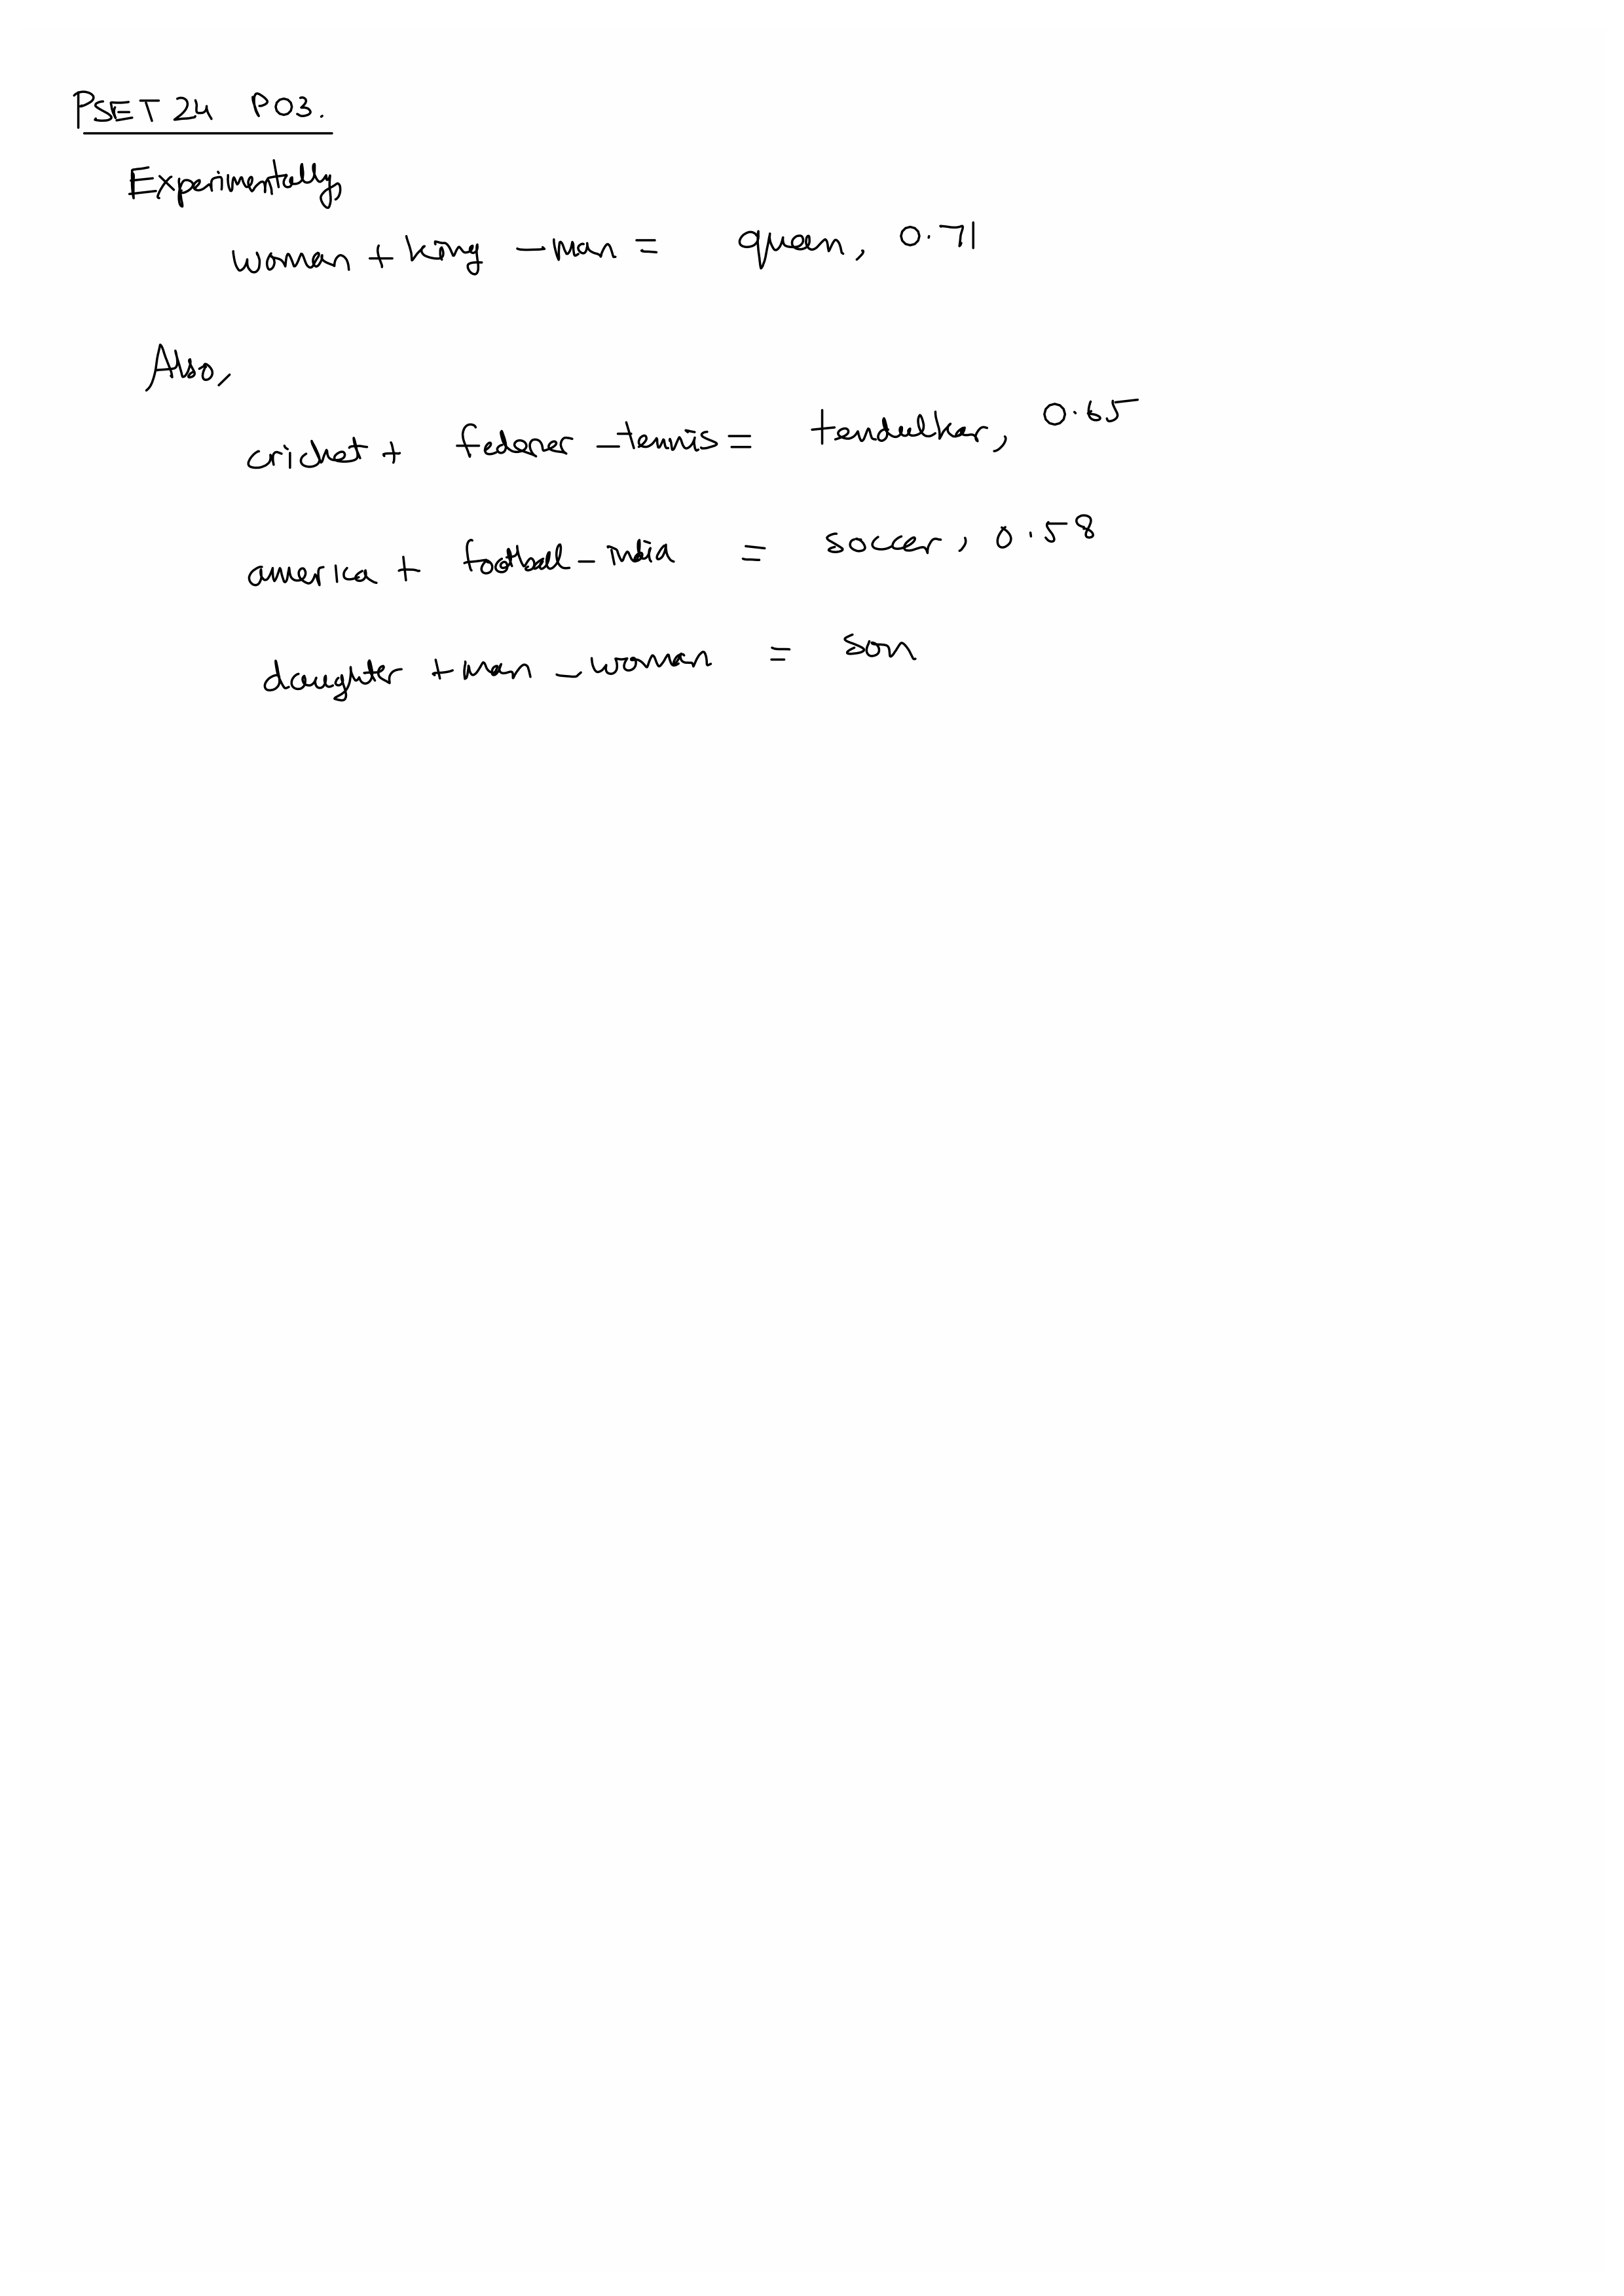 PSET 24 P03.
Experimentally,
woman + king - man = queen, 0.71
Also,
cricket + federer - tennis = tendulkar, 0.65
america + football - india = soccer, 0.58
daughter + man - woman = son